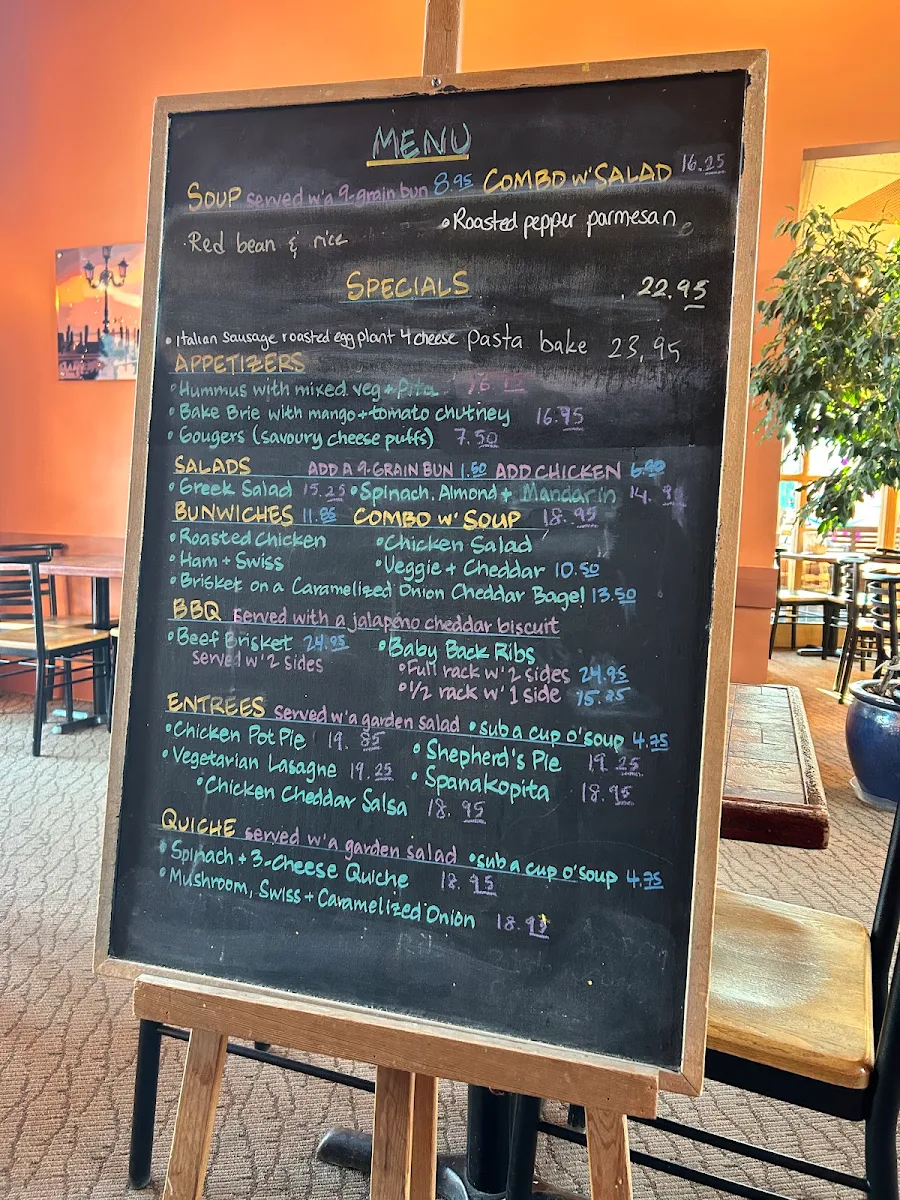 MENU
SOUP served w'a 9-grain bun 8.95 COMBO w' SALAD 16.25
• Roasted pepper parmesan
· Red bean & rice
SPECIALS 22.95
• Italian Sausage roasted egg plant 4 cheese pasta bake 23,95
APPETIZERS
• Hummus with mixed veg + Pita
• Bake Brie with mango + tomato chutney 16.95
• Gougers (savoury cheese puffs) 7.50
SALADS ADD A 9-GRAIN BUN 1.50 ADD CHICKEN
• Greek Salad 15.25 • Spinach, Almond + Mandarin
BUNWICHES COMBO w' SOUP 18.95
• Roasted Chicken • Chicken Salad
• Ham + Swiss • Veggie + Cheddar 10.50
• Brisket on a Caramelized Onion Cheddar Bagel 13.50
BBQ served with a jalapeño cheddar biscuit
• Beef Brisket 24.95 • Baby Back Ribs
served w' 2 sides • Full rack w' 2 sides 24.95
• 1/2 rack w' 1 side 15.25
ENTREES served w'a garden salad • sub a cup o' soup 4.75
• Chicken Pot Pie 19.85 • Shepherd's Pie 19.25
• Vegetarian Lasagne 19.25 • Spanakopita 18.95
• Chicken Cheddar Salsa 18.95
QUICHE served w'a garden salad • sub a cup o' soup 4.75
• Spinach + 3-Cheese Quiche 18.95
• Mushroom, Swiss + Caramelized Onion